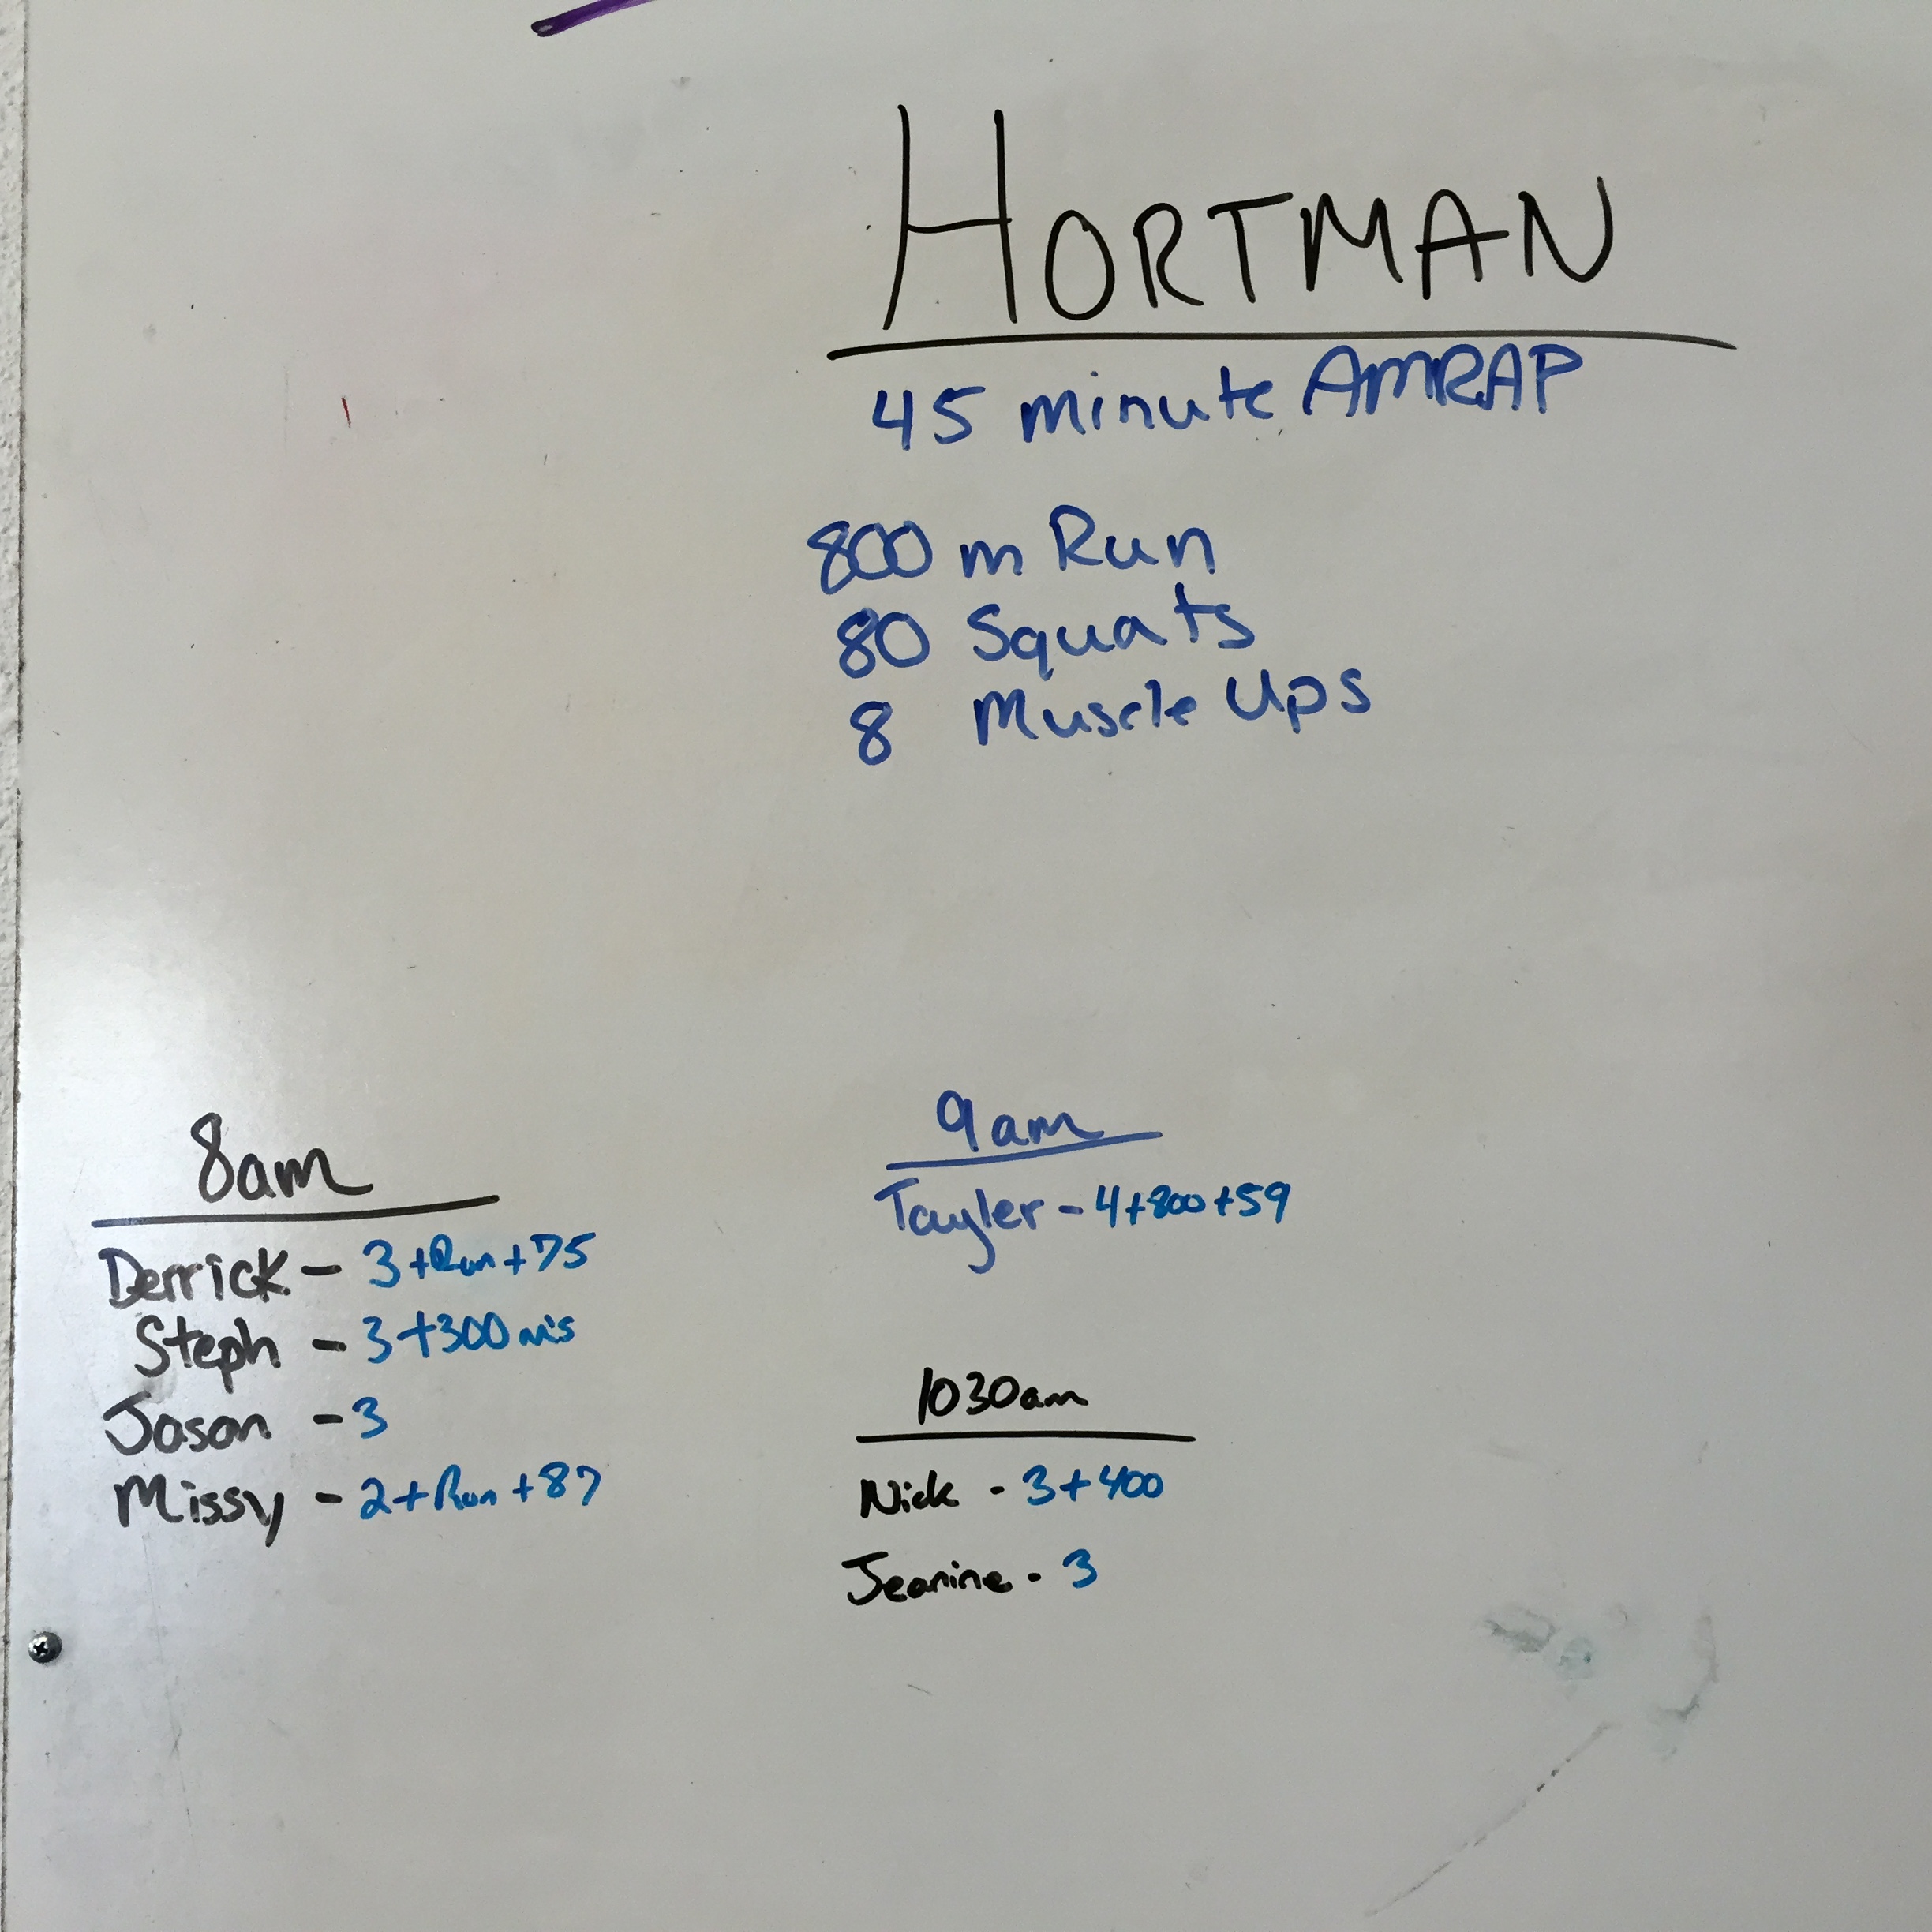 HORTMAN
45 minute AMRAP
800 m Run
80 Squats
8 Muscle Ups
8am
Derrick - 3+Run+75
Steph - 3+300m's
Jason - 3
Missy - 2+Run+87
9am
Tayler - 4+800+59
1030am
Nick - 3+400
Jeanine - 3